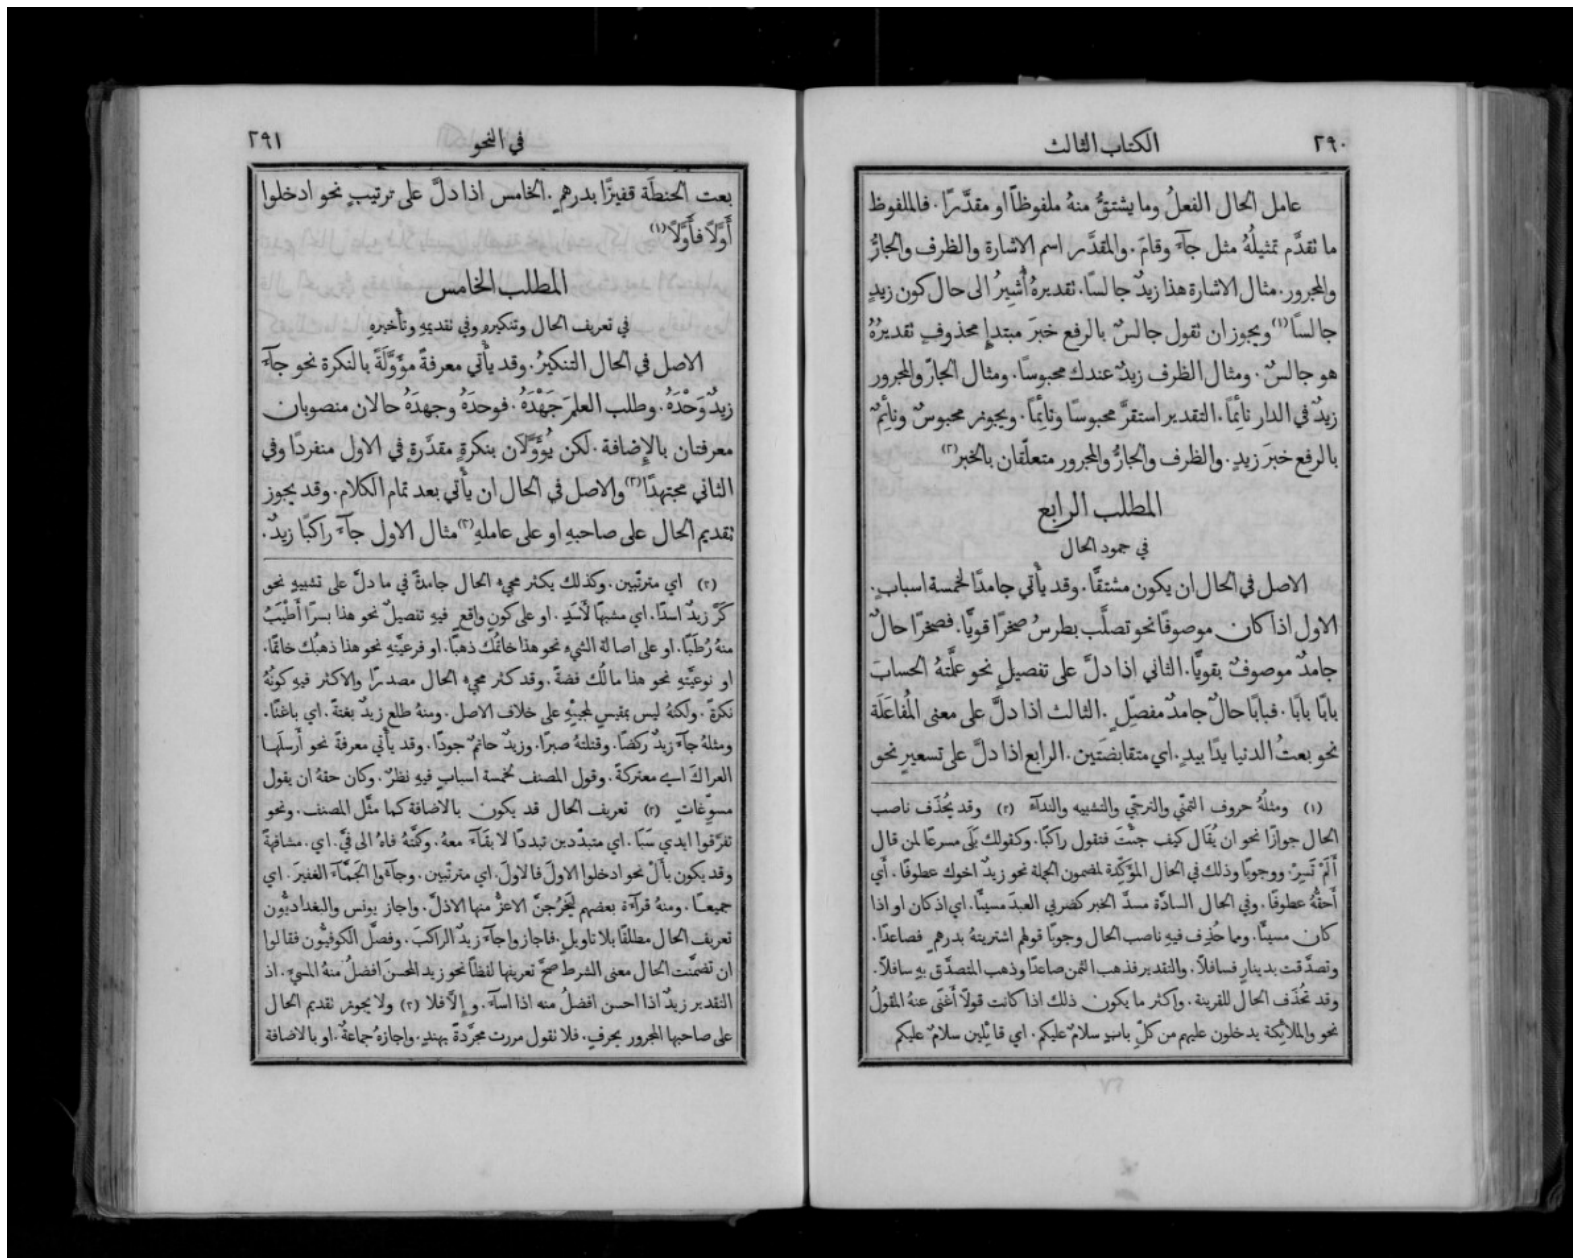 ٢٩٠
الكتاب الثالث
عامل الحال الفعلُ وما يشتقُّ منهُ ملفوظاً او مقدَّرًا. فالملفوظ
ما تقدَّم تمثيلُهُ مثل جآءَ وقامَ. والمقدَّر اسم الاشارة والظرف والجارُّ
والمجرور. مثال الاشارة هذا زيدٌ جالسًا. تقديرهُ أُشيرُ الى حال كون زيدٍ
جالسًا(١) ويجوز ان تقول جالسٌ بالرفع خبرَ مبتدإٍ محذوفٍ تقديرُهُ
هو جالسٌ. ومثال الظرف زيدٌ عندك محبوسًا. ومثال الجارّ والمجرور
زيدٌ في الدار نائمًا. التقدير استقرَّ محبوسًا ونائمًا. ويجوز محبوسٌ ونائمٌ
بالرفع خبرَ زيدٍ. والظرف والجارُّ والمجرور متعلّقان بالخبر(٢)
المطلب الرابع
في جمود الحال
الاصل في الحال ان يكون مشتقًّا. وقد يأتي جامدًا لخمسة اسبابٍ.
الاول اذا كان موصوفًا نحو تصلَّب بطرسُ صخرًا قويًّا. فصخرًا حالٌ
جامدٌ موصوفٌ بقويًّا. الثاني اذا دلَّ على تفصيلٍ نحو علَّمتهُ الحسابَ
بابًا بابًا. فبابًا حالٌ جامدٌ مفصِّلٍ. الثالث اذا دلَّ على معنى المُفاعَلَة
نحو بعتُ الدنيا يدًا بيدٍ. اي متقابضَتين. الرابع اذا دلَّ على تسعيرٍ نحو
(١) ومثلُهُ حروف التمنّي والترجّي والتشبيه والندآء (٢) وقد يُحذَف ناصب
الحال جوازًا نحو ان يُقَال كيف جئتَ فتقول راكبًا. وكقولك بَلَى مسرعًا لمن قال
أَلَمْ تَسِرْ. ووجوبًا وذلك في الحال المؤكِّدة لمضمون الجملة نحو زيدٌ اخوك عطوفًا. أَي
أَحقُّهُ عطوفًا. وفي الحال السادَّة مسدَّ الخبر كضربي العبدَ مسيئًا. اي اذ كان او اذا
كان مسيئًا. ومما حُذِف فيهِ ناصب الحال وجوبًا قولهم اشتريتهُ بدرهمٍ فصاعدًا.
وتصدَّقت بدينارٍ فسافلاً. والتقدير فذهب الثمن صاعدًا وذهب المتصدَّق بهِ سافلاً.
وقد تُحذَف الحال للقرينة. واكثر ما يكون ذلك اذا كانت قولًا أَغنَى عنهُ المقولُ
نحو والملائكة يدخلون عليهم من كلّ بابٍ سلامٌ عليكم. اي قائلين سلامٌ عليكم
٢٩١
في النحو
بعت الحنطَة قفيزًا بدرهمٍ. الخامس اذا دلَّ على ترتيبٍ نحو ادخلوا
أَوَّلًا فأَوَّلًا(١)
المطلب الخامس
في تعريف الحال وتنكيرهِ وفي تقديمهِ وتأخيرهِ
الاصل في الحال التنكيرُ. وقد يأتي معرفةً مؤَوَّلَةً بالنكرة نحو جآءَ
زيدٌ وَحْدَهُ. وطلب العلمَ جَهْدَهُ. فوحدَهُ وجهدَهُ حالان منصوبان
معرفتان بالإِضافة. لكن يُؤَوَّلان بنكرةٍ مقدَّرةٍ في الاول منفردًا وفي
الثاني مجتهدًا(٢) والاصل في الحال ان يأتي بعد تمام الكلام. وقد يجوز
تقديم الحال على صاحبهِ او على عاملهِ(٣) مثال الاول جآءَ راكبًا زيدٌ.
(٢) اي مترتّبين. وكذلك يكثر مجيءُ الحال جامدةً في ما دلَّ على تشبيهٍ نحو
كَرَّ زيدٌ اسدًا. اي مشبهًا لأَسَدٍ. او على كونٍ واقعٍ فيهِ تفصيلٌ نحو هذا بسرًا أَطْيَبُ
منهُ رُطَبًا. او على اصالة الشيءِ نحو هذا خاتمُك ذهبًا. او فرعيَّتهِ نحو هذا ذهبُك خاتمًا.
او نوعيَّتهِ نحو هذا مالُك فضةً. وقد كثر مجيءُ الحال مصدرًا والاكثر فيهِ كونُهُ
نكرةً. ولكنهُ ليس بمقيسٍ لمجيئهِ على خلاف الاصل. ومنهُ طلع زيدٌ بغتةً. اي باغتًا.
ومثلهُ جآءَ زيدٌ ركضًا. وقتلتهُ صبرًا. وزيدٌ حاتمٌ جودًا. وقد يأتي معرفةً نحو أَرسلَهَا
العراكَ اي معتركةً. وقول المصنف لخمسة اسبابٍ فيهِ نظرٌ. وكان حقهُ ان يقول
مسوِّغاتٍ (٢) تعريف الحال قد يكون بالاضافة كما مثّل المصنف. ونحو
تفرَّقوا ايدي سَبَا. اي متبدّدين تبددًا لا بقآءَ معهُ. وكلَّمتُهُ فاهُ الى فيَّ. اي. مشافهةً
وقد يكون بأَلْ نحو ادخلوا الاولَ فالاولَ. اي مترتّبين. وجآءوا الجَمَّآءَ الغفيرَ. اي
جميعًا. ومنهُ قرآءَة بعضهم لَيَخْرُجنَّ الاعزُّ منها الاذلَّ. واجاز يونس والبغداديُّون
تعريف الحال مطلقًا بلا تاويلٍ. فاجازوا جآءَ زيدٌ الراكبَ. وفصَّل الكوفيُّون فقالوا
ان تضمَّنت الحال معنى الشرط صحَّ تعريفها لفظًا نحو زيد المحسنَ افضلُ منهُ المسيءَ. اذ
التقدير زيدٌ اذا احسن افضلُ منه اذا اسآءَ. وإِلَّا فلا (٣) ولا يجوز تقديم الحال
على صاحبها المجرور بحرفٍ. فلا تقول مررت مجرَّدةً بهندٍ. واجازهُ جماعةٌ. او بالاضافة